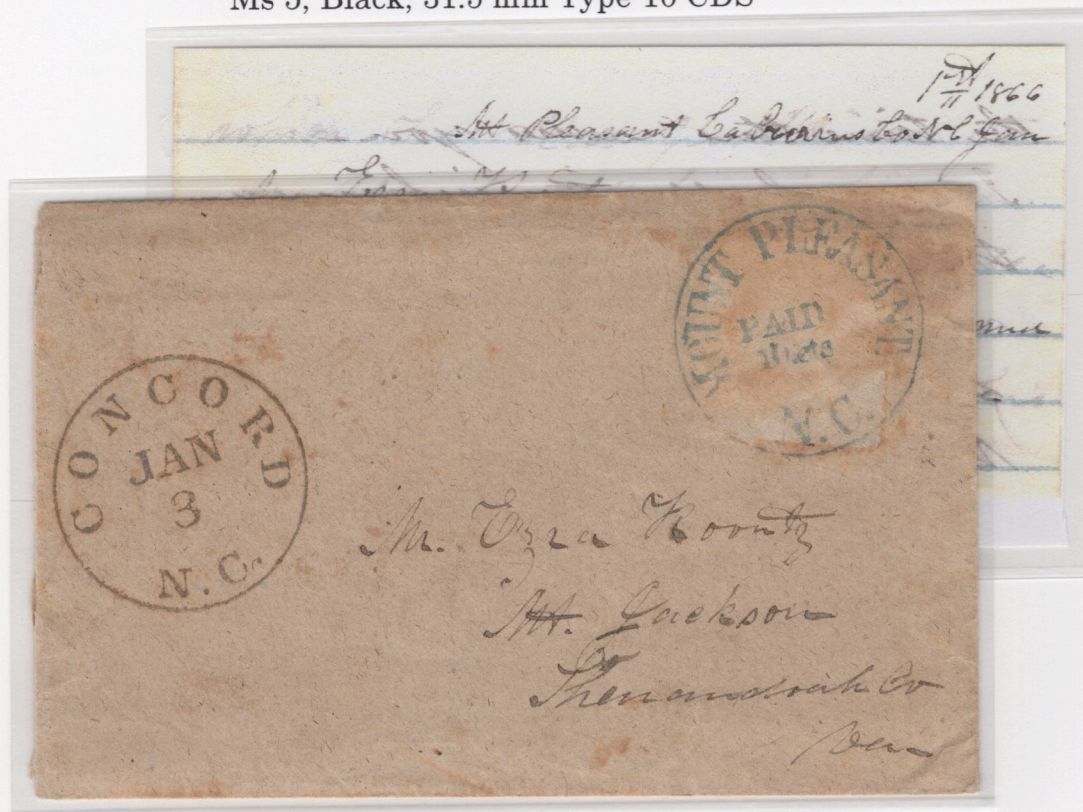 Ms 5, Black, 31.5 mm Type 10 CDS
1st 1866
Mt Pleasant Cabarrus Co N C Jan
MOUNT PLEASANT.
PAID
10cts
N.C.
CONCORD
JAN
3
N.C.
Mr. Ezra Koontz
Mt. Jackson
Shenandoah Co
Va